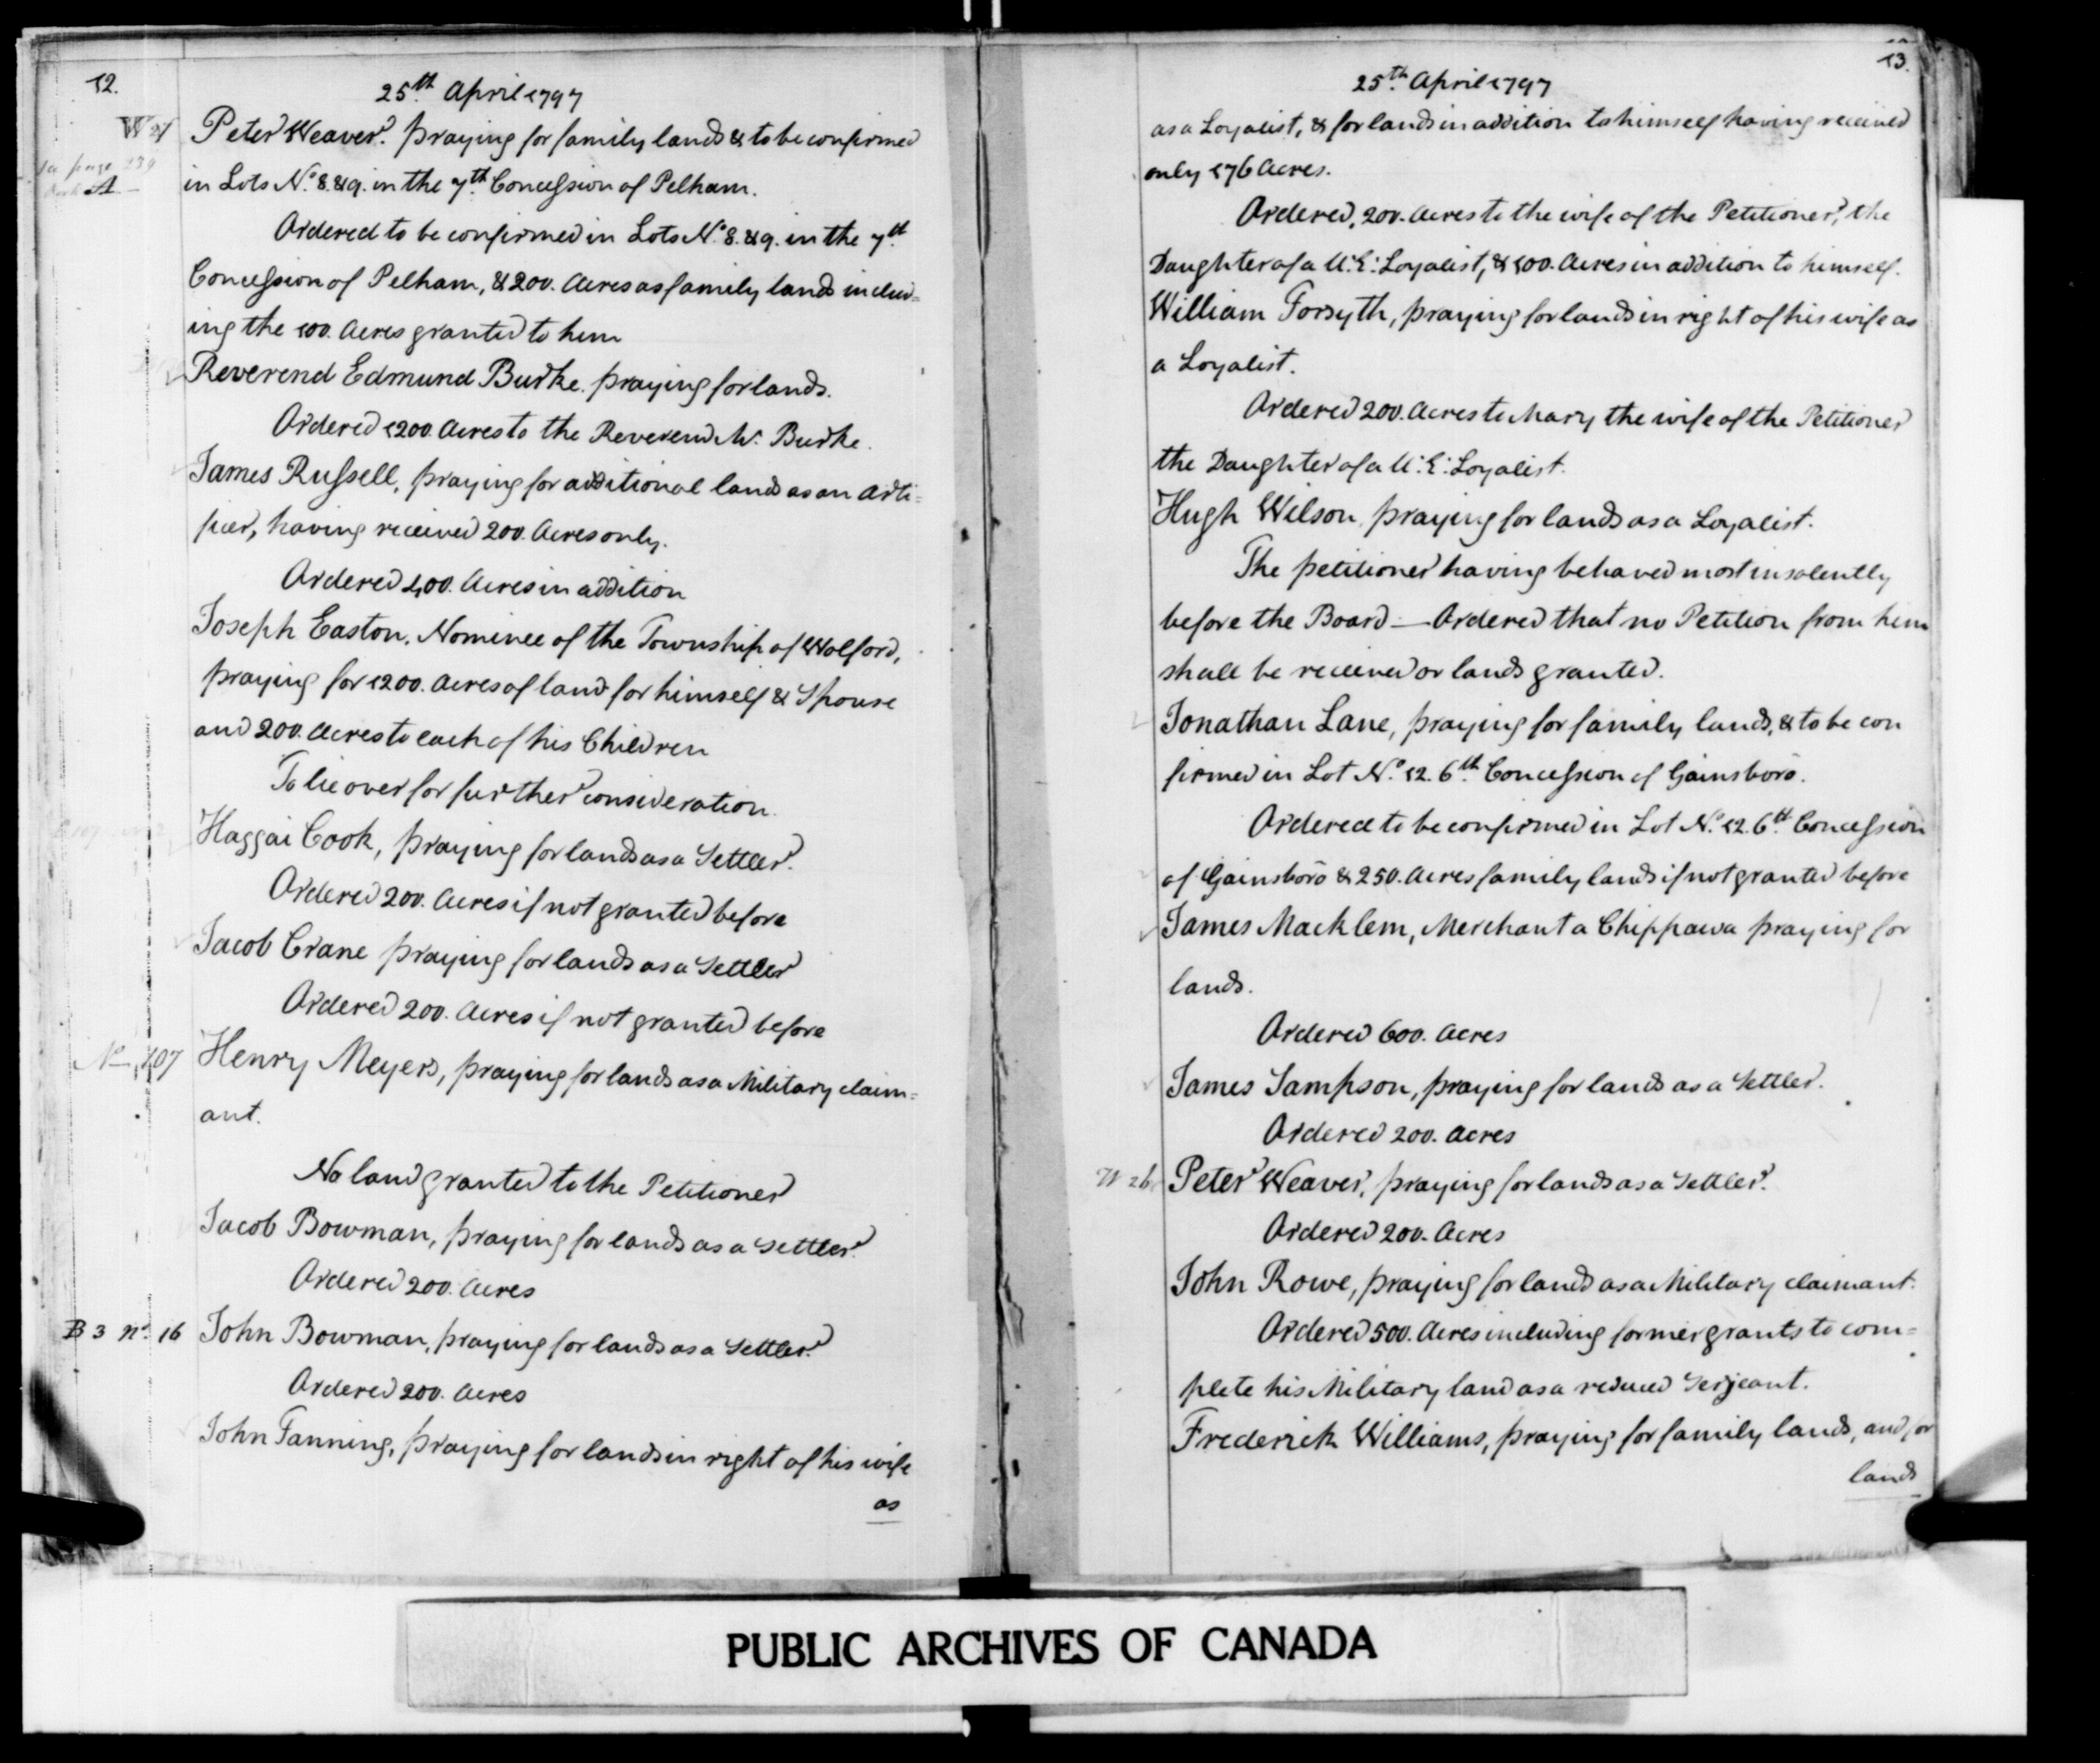 12.
25th. April 1797
W 21
Peter Weaver. praying for family lands & to be confirmed
in Lots No. 8. & 9. in the 7th. Concession of Pelham.
Ordered to be confirmed in Lots No. 8. & 9. in the 7th.
Concession of Pelham, & 200. Acres as family lands includ=
ing the 100. Acres granted to him
Reverend Edmund Burke. praying for lands.
Ordered 1200. Acres to the Reverend Mr. Burke.
James Russell, praying for additional lands as an Arti=
ficer, having received 200. Acres only.
Ordered 400. Acres in addition
Joseph Easton. Nominee of the Township of Wolford,
praying for 1200. Acres of land for himself & Spouse
and 200. Acres to each of his Children
To lie over for further consideration.
Haggai Cook, praying for lands as a Settler.
Ordered 200. Acres if not granted before
Jacob Crane praying for lands as a Settler
Ordered 200. Acres if not granted before
Henry Meyers, praying for lands as a Military claim=
ant.
No land granted to the Petitioner
Jacob Bowman, praying for lands as a Settler.
Ordered 200. Acres
B 3 No. 16 John Bowman, praying for lands as a Settler.
Ordered 200. Acres
John Fanning, praying for lands in right of his wife
as
13.
25th. April 1797
as a Loyalist, & for lands in addition to himself having received
only 176 Acres.
Ordered, 200. Acres to the wife of the Petitioner, the
Daughter of a U: E: Loyalist, & 100. Acres in addition to himself.
William Forsyth, praying for lands in right of his wife as
a Loyalist.
Ordered 200. Acres to Mary the wife of the Petitioner
the Daughter of a U: E: Loyalist.
Hugh Wilson, praying for lands as a Loyalist.
The petitioner having behaved most insolently
before the Board — Ordered that no Petition from him
shall be received or lands granted.
Jonathan Lane, praying for family lands, & to be con
firmed in Lot No. 12. 6th. Concession of Gainsboro.
Ordered to be confirmed in Lot No. 12. 6th. Concession
of Gainsboro & 250. Acres family lands if not granted before
James Macklem, Merchant a Chippawa praying for
lands.
Ordered 600. Acres
James Sampson, praying for lands as a Settler.
Ordered 200. Acres
W 26 Peter Weaver, praying for lands as a Settler.
Ordered 200. Acres
John Rowe, praying for lands as a Military claimant.
Ordered 500. Acres including former grants to com=
plete his Military land as a reduced Serjeant.
Frederick Williams, praying for family lands, and for
lands
PUBLIC ARCHIVES OF CANADA